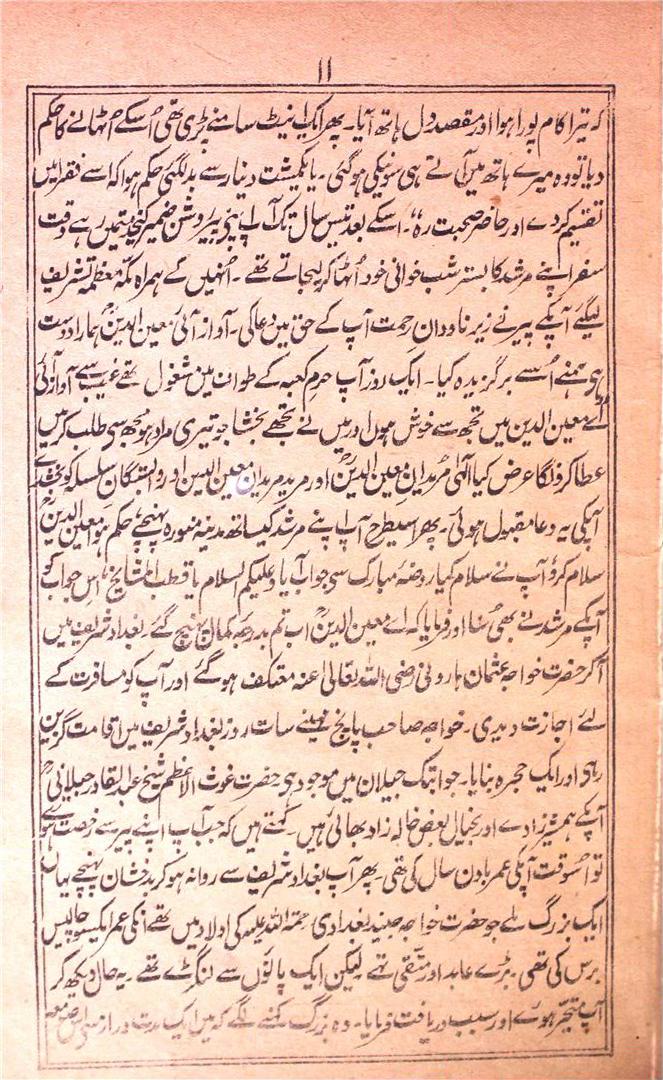 ۱۱
کہ تیرا کام پورا ہوا اور مقصد دل ہاتھ آیا۔ پھر ایک اینٹ سامنے پڑی تھی اُسکے اُٹھانے کا حکم
دیا تو وہ میرے ہاتھ میں آتے ہی سونیکی ہو گئی۔ یا یکمشت دینار سے بدلگئی حکم ہوا کہ اسے فقرا میں
تقسیم کر دے اور حاضر صحبت رہ، اسکے بعد تیس سال تک آپ اپنے پیر روشن ضمیر کیخدمتمیں رہے وقت
سفر اپنے مرشد کا بستر شب خوابی خود اُٹھا کر لیجاتے تھے۔ اُنہیں کے ہمراہ مکہ معظمہ تشریف
لیگئے آپکے پیر نے زیر ناودان رحمت آپ کے حق میں دعا کی۔ آواز آئی معین الدینؒ ہمارا دوست
ہی ہمنے اُسے برگزیدہ کیا۔ ایک روز آپ حرم کعبہ کے طواف میں مشغول تھے غیب سے آواز آئی
اے معین الدین میں تجھ سے خوش ہوں اور میں نے تجھے بخشا جو تیری مراد ہو مجھ سی طلب کر میں
عطا کرونگا عرض کیا الٰہی مُریدانِ معین الدینؒ اور مرید مریدان معین الدین اور وابستگان سلسلہ کو بخشدے
آپکی یہ دعا مقبول ہوئی۔ پھر اسیطرح آپ اپنے مرشد کیساتھ مدینہ منورہ پہنچے حکم ہوا معین الدینؒ
سلام کرو آپ نے سلام کیا روضۂ مبارک سی جواب آیا وعلیکم السلام یا قطب المشایخ، اس جواب کو
آپکے مرشد نے بھی سُنا اور فرمایا کہ اے معین الدینؒ اب تم بدرجہ کمال پہنچ گئے۔ بغداد شریف میں
آکر حضرت خواجہ عثمان ہارونی رضی اللہ تعالیٰ عنہ معتکف ہو گئے اور آپ کو مسافرت کے
لئے اجازت دیدی۔ خواجہ صاحب پانچ مہینے سات روز بغداد شریف میں اقامت گزین
رہی اور ایک حجرہ بنایا۔ جو ابتک جیلان میں موجود ہی۔ حضرت غوث الاعظم شیخ عبدالقادر جیلانیؒ
آپکے ہمشیرزادے اور بخیال بعض خالہ زاد بھائی ہیں۔ کہتے ہیں کہ جب آپ اپنے پیر سے رخصت ہوئے
تو اُسوقت آپکی عمر باون سال کی تھی۔ پھر آپ بغداد شریف سے روانہ ہو کر بدخشان پہنچے یہاں
ایک بزرگ ملے جو حضرت خواجہ جنید بغدادی رحمۃ اللہ علیہ کی اولاد میں تھے انکی عمر ایکسو چالیس
برس کی تھی۔ بڑے عابد اور متقی تھے لیکن ایک پاؤں سے لنگڑے تھے۔ یہ حال دیکھ کر
آپ متحیر ہوئے اور سبب دریافت فرمایا۔ وہ بزرگ کہنے لگے کہ میں ایک مدت دراز سی اس